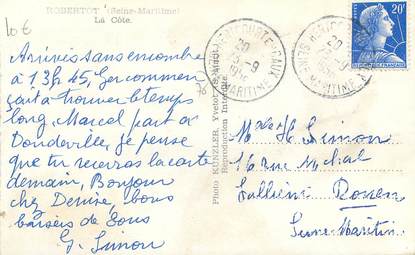 ROBERTOT (Seine-Maritime)
La Côte.
10 €
Arrivés sans encombre
à 13h 45, Ger commen
çait à trouver le temps
long, Marcel part à
Doudeville, je pense
que tu recevras la carte
demain, Bonjour
chez Denise, bons
baisers de tous
G. Simon
76
Photo KUNZLER, Yvetot
Reproduction Interdite
CAUX
20 -9
MARITIME
SEINE
20 -9
MARITIME
20F
H. Simon
16 rue
Rouen
Seine Maritim